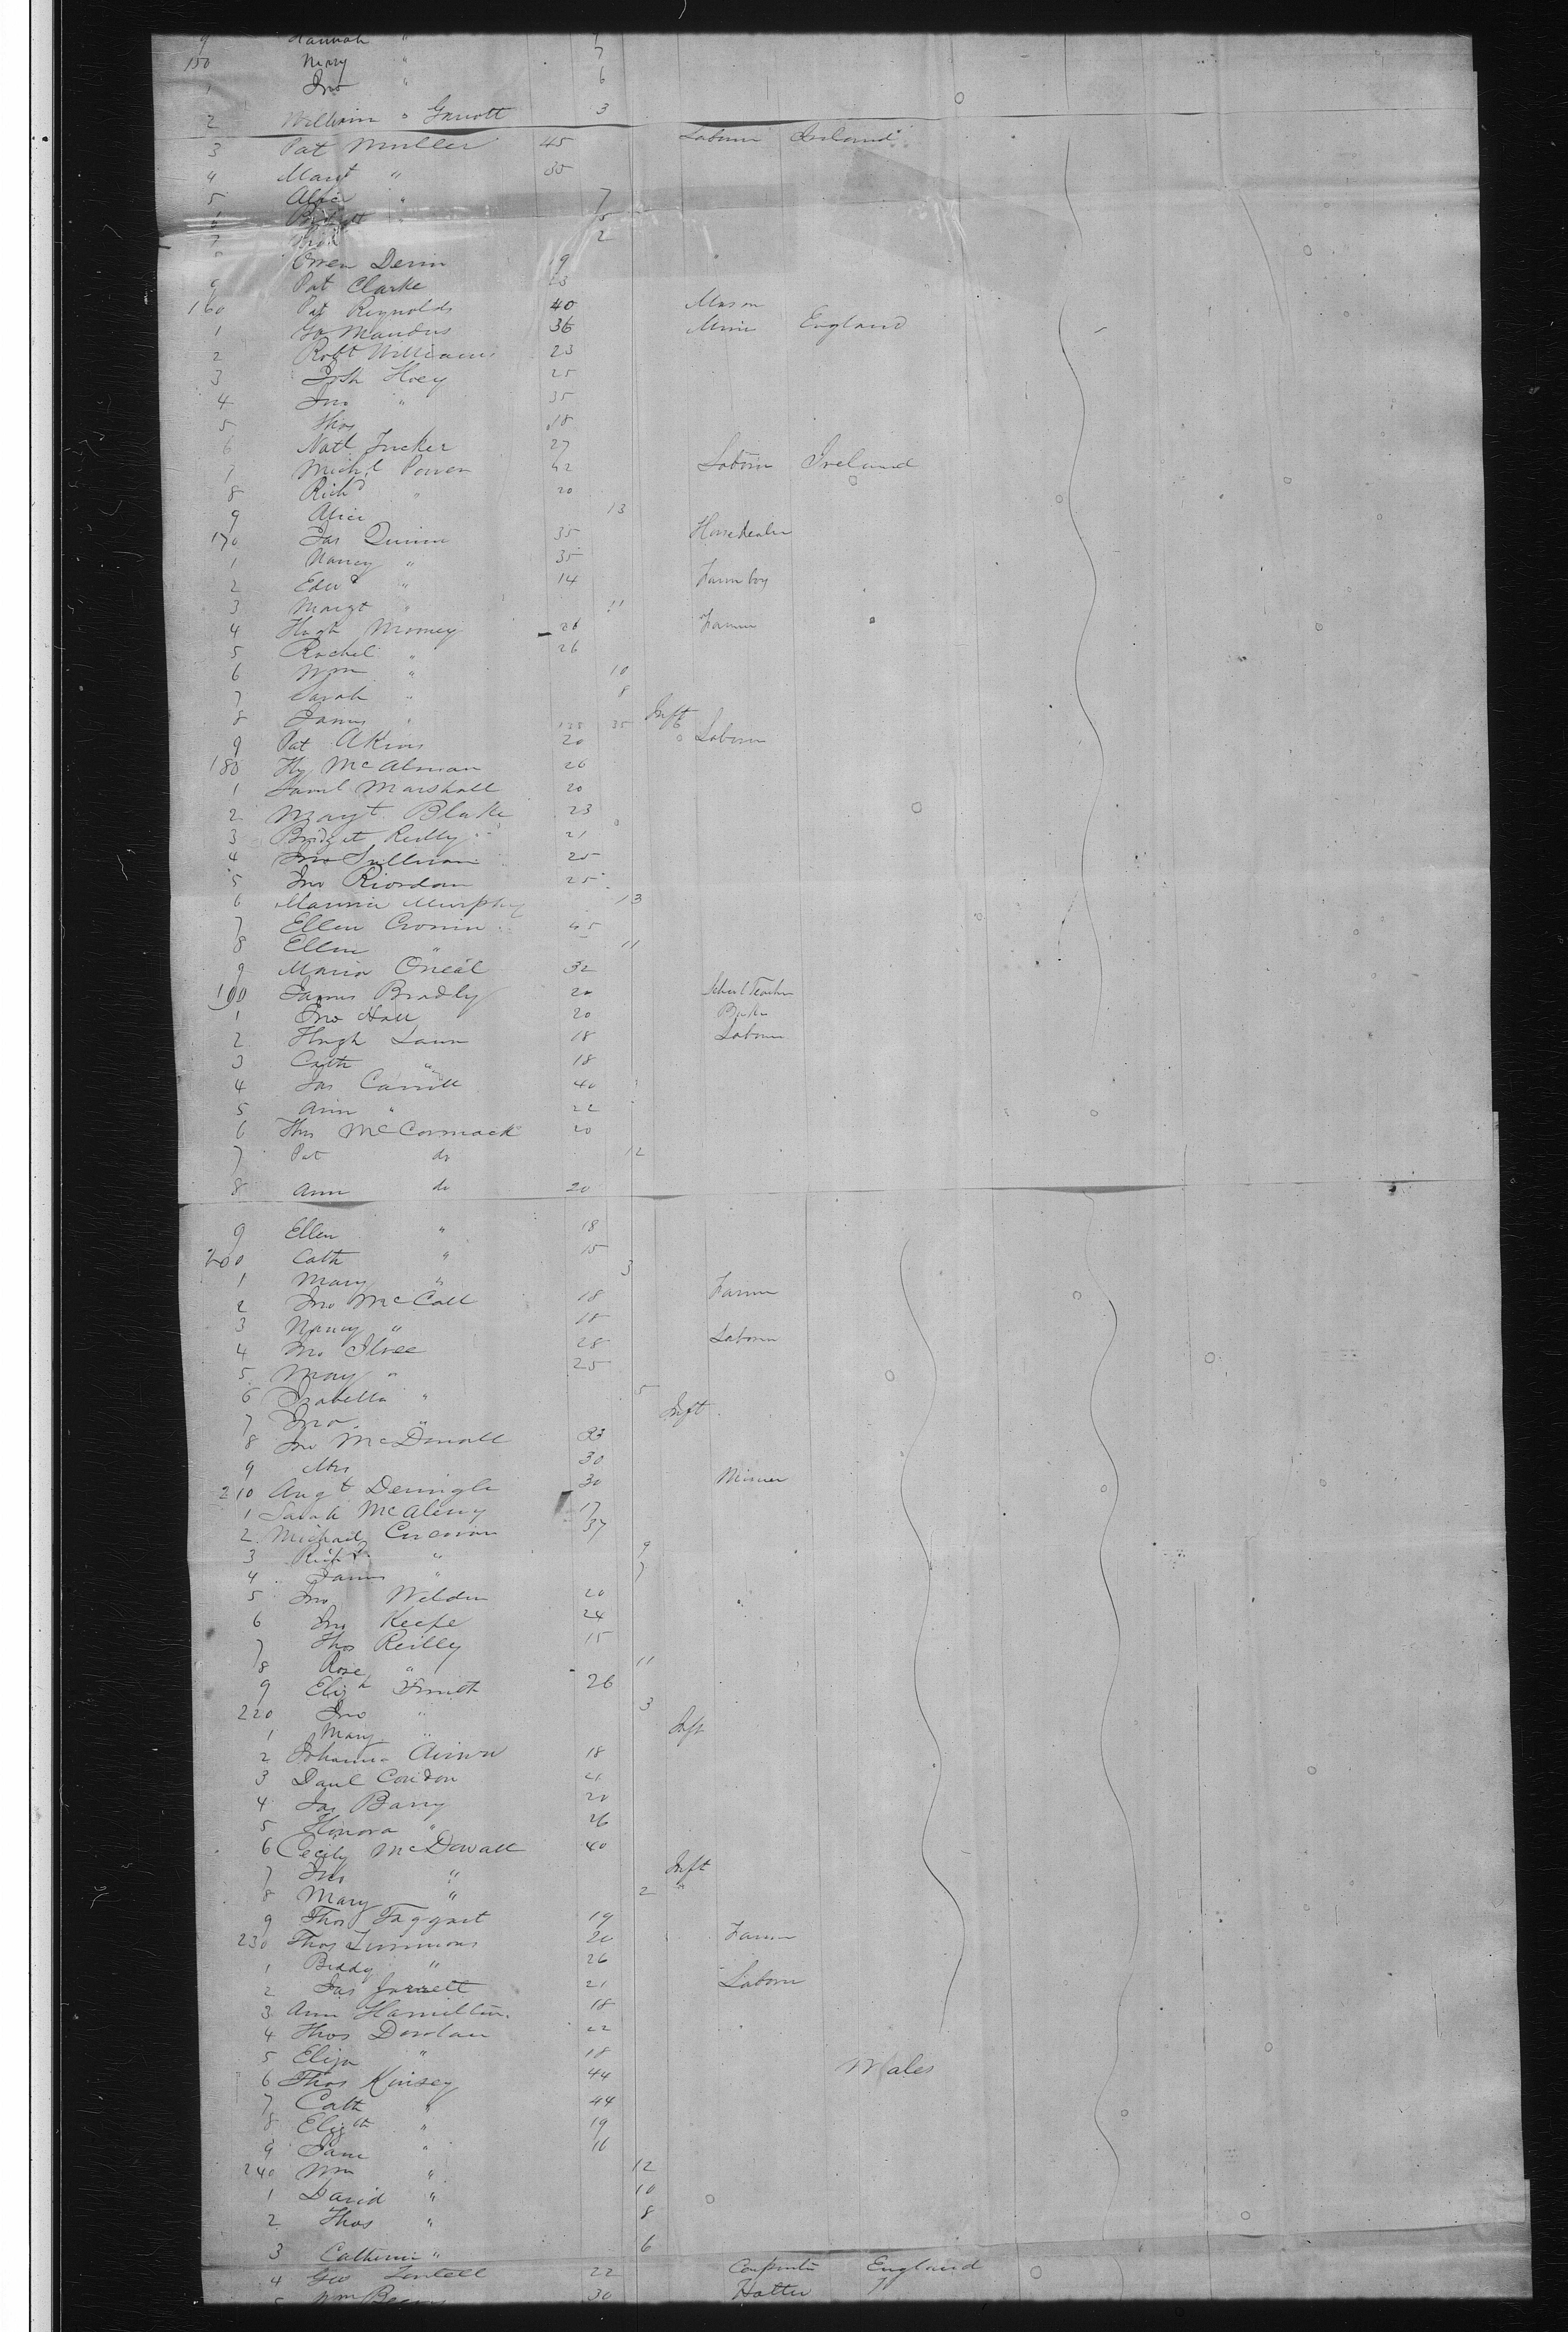 9 Hannah "
150 Mary " 7
1 Jno " 6
2 William " Garrott 3
3 Pat Muller 45 Laborer Ireland
4 Margt " 35
5 Alice " 7
6 Bridgett 5
7 2
Owen Devin 19
Pat Clarke 23
160 Pat Reynolds 40 Mason
1 36 Miner England
2 Robt Williams 23
3 Josh Hoey 25
4 Jno " 35
5 Thos 18
6 Natl Tucker 27
7 Michl Power 42 Laborer Ireland
8 Richd " 20
9 Alice 13
170 Jas Quinn 35 Horsedealer
1 Nancy " 35
2 Edwd " 14 Farm boy
3 Margt " 11
4 Hugh Mooney 28 Farmer
5 Rachel " 26
6 Wm " 10
7 Sarah " 8
8 James " 135 35 Inft 6
9 Pat Akins 20 Laborer
180 Hy McAlman 26
1 Saml Marshall 20
2 Margt Blake 23
3 Bridget Reilly 21
4 Jno Sullivan 25
5 Jno Riordan 25
6 Murphy 13
7 Ellen Cronin 45
8 Ellen " 11
9 Maria Oneal 32
190 James Bradly 20 School Teacher
1 Jno Hall 20
2 Hugh 18 Laborer
3 Cath " 18
4 Jas Carrill 40
5 Ann " 22
6 Thos McCormack 20
7 Pat do 12
8 Ann do 20
9 Ellen " 18
200 Cath " 15
1 Mary " 3
2 Jno McCall 18 Farmer
3 Nancy " 18
4 Jno 28 Laborer
5 Mary " 25
6 Isabella " 5
7 Jno " Inft
8 Jno McDowall 33
9 Mrs 30
210 Augt 30 Miner
1 Sarah McAleny 17
2 Michael 37
3 Richd " 9
4 James " 7
5 Jno Weldon 20
6 Jno Keefe 24
7 Thos Reilly 15
8 Rose " 11
9 Elizh Smith 26
220 Jno " 3
1 Mary " Inft
2 Johanna 18
3 Danl Condon 21
4 Jas Barry 20
5 Honora " 26
6 Cecily McDowall 40
7 Jno " Inft
8 Mary " 2 "
9 Thos Taggart 19
230 Thos Timmons 20 Farmer
1 Biddy " 26
2 Jas 21 Laborer
3 Ann Hamilton 18
4 Thos Dordan 22
5 Eliza " 18
6 Thos Kinsey 44 Wales
7 Cath " 44
8 Elizth " 19
9 Jane " 16
240 Wm " 12
1 David " 10
2 Thos " 8
3 Catherine " 6
4 Geo 22 Carpenter England
5 Wm 30 Hatter "